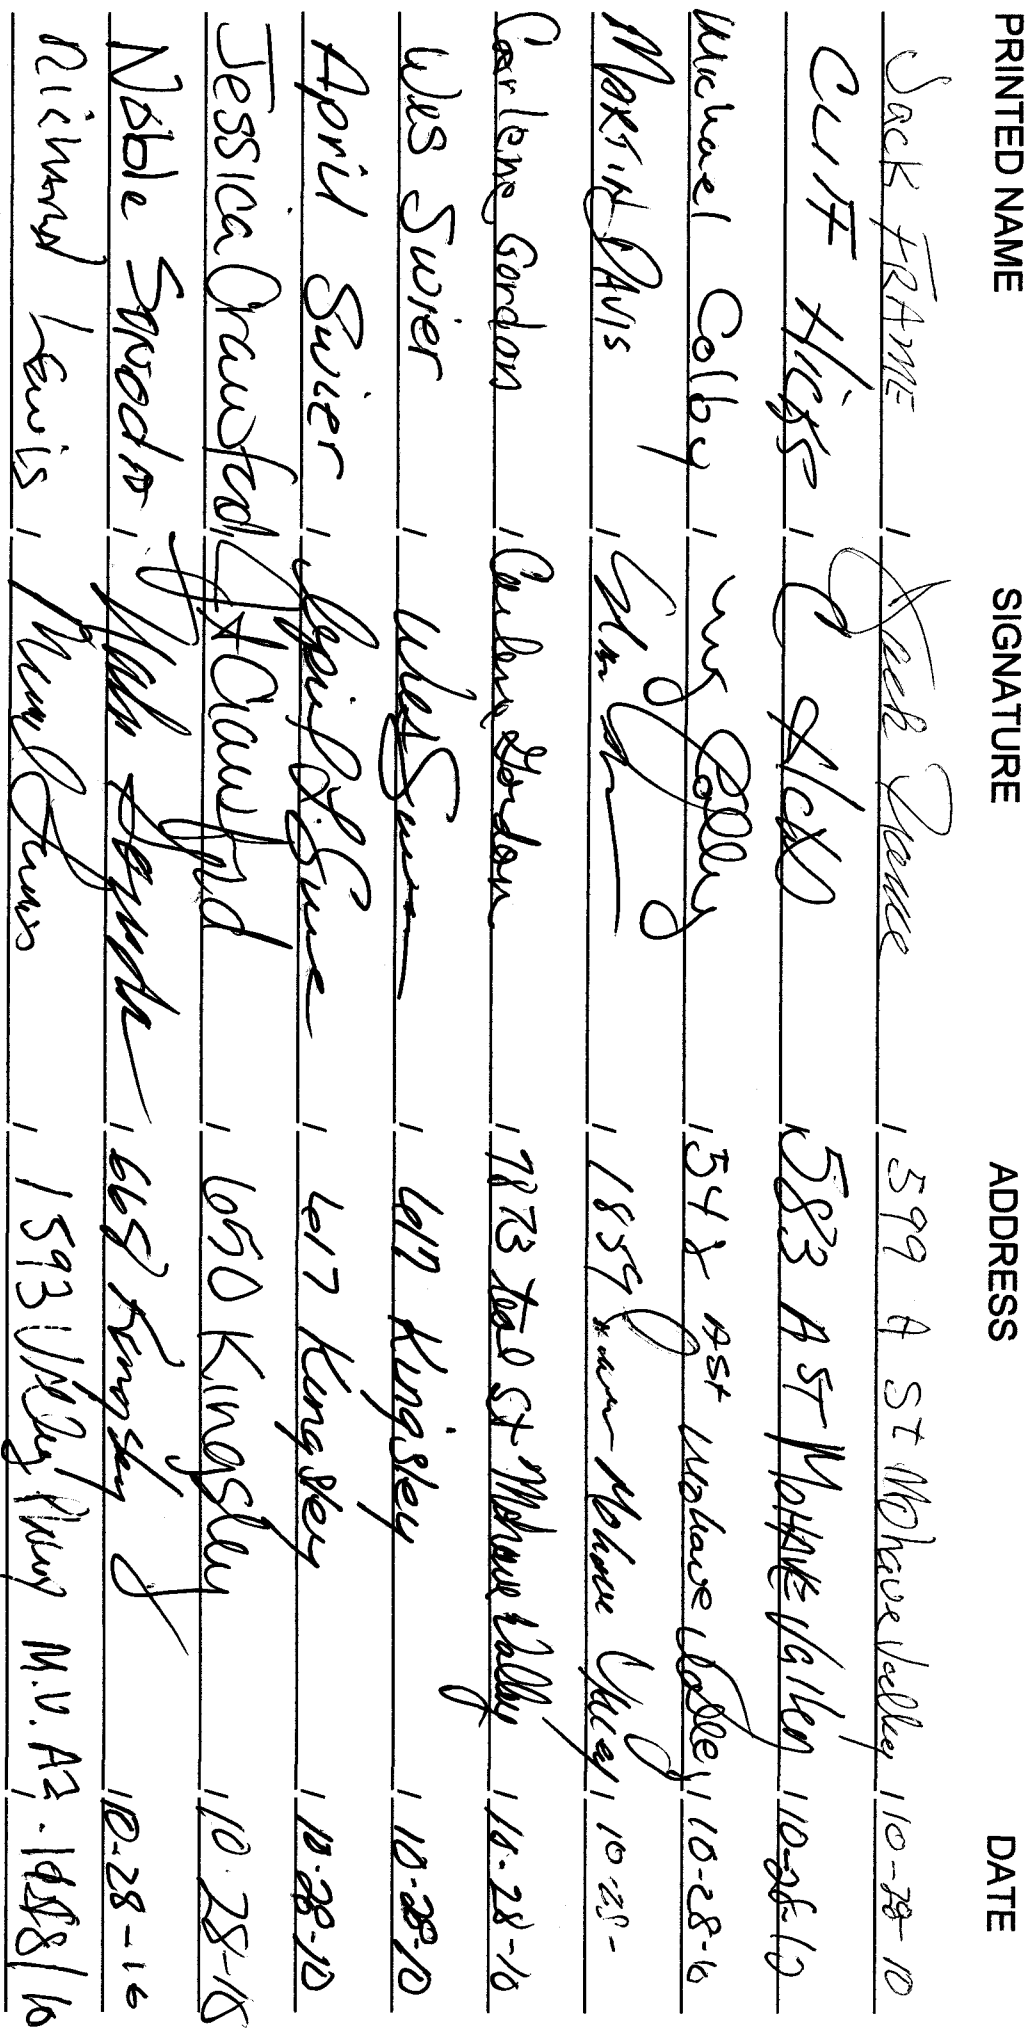 PRINTED NAME SIGNATURE ADDRESS DATE
Jack FRAME / Jack Frame / 599 A St Mohave Valley / 10-28-10
Cliff Hicks / C Hicks / 583 A ST MOHAVE Valley / 10-28-10
Michael Colby / Colby / 548 A St Mohave Valley / 10-28-10
MARTIN DAVIS / / 1859 Mohave Valley / 10-28-
Carlene Gordon / Carlene Gordon / 7873 teal St Mohave Valley / 10-28-10
Wes Swier / Wes Swier / 617 Kingsley / 10-28-10
April Swier / April L. Swier / 617 Kingsley / 10-28-10
Jessica Crawford / Crawford / 650 Kingsley / 10-28-10
Noble / / 668 Kingsley / 10-28-10
Richard Lewis / / 1593 M.V. AZ - 10/28/10